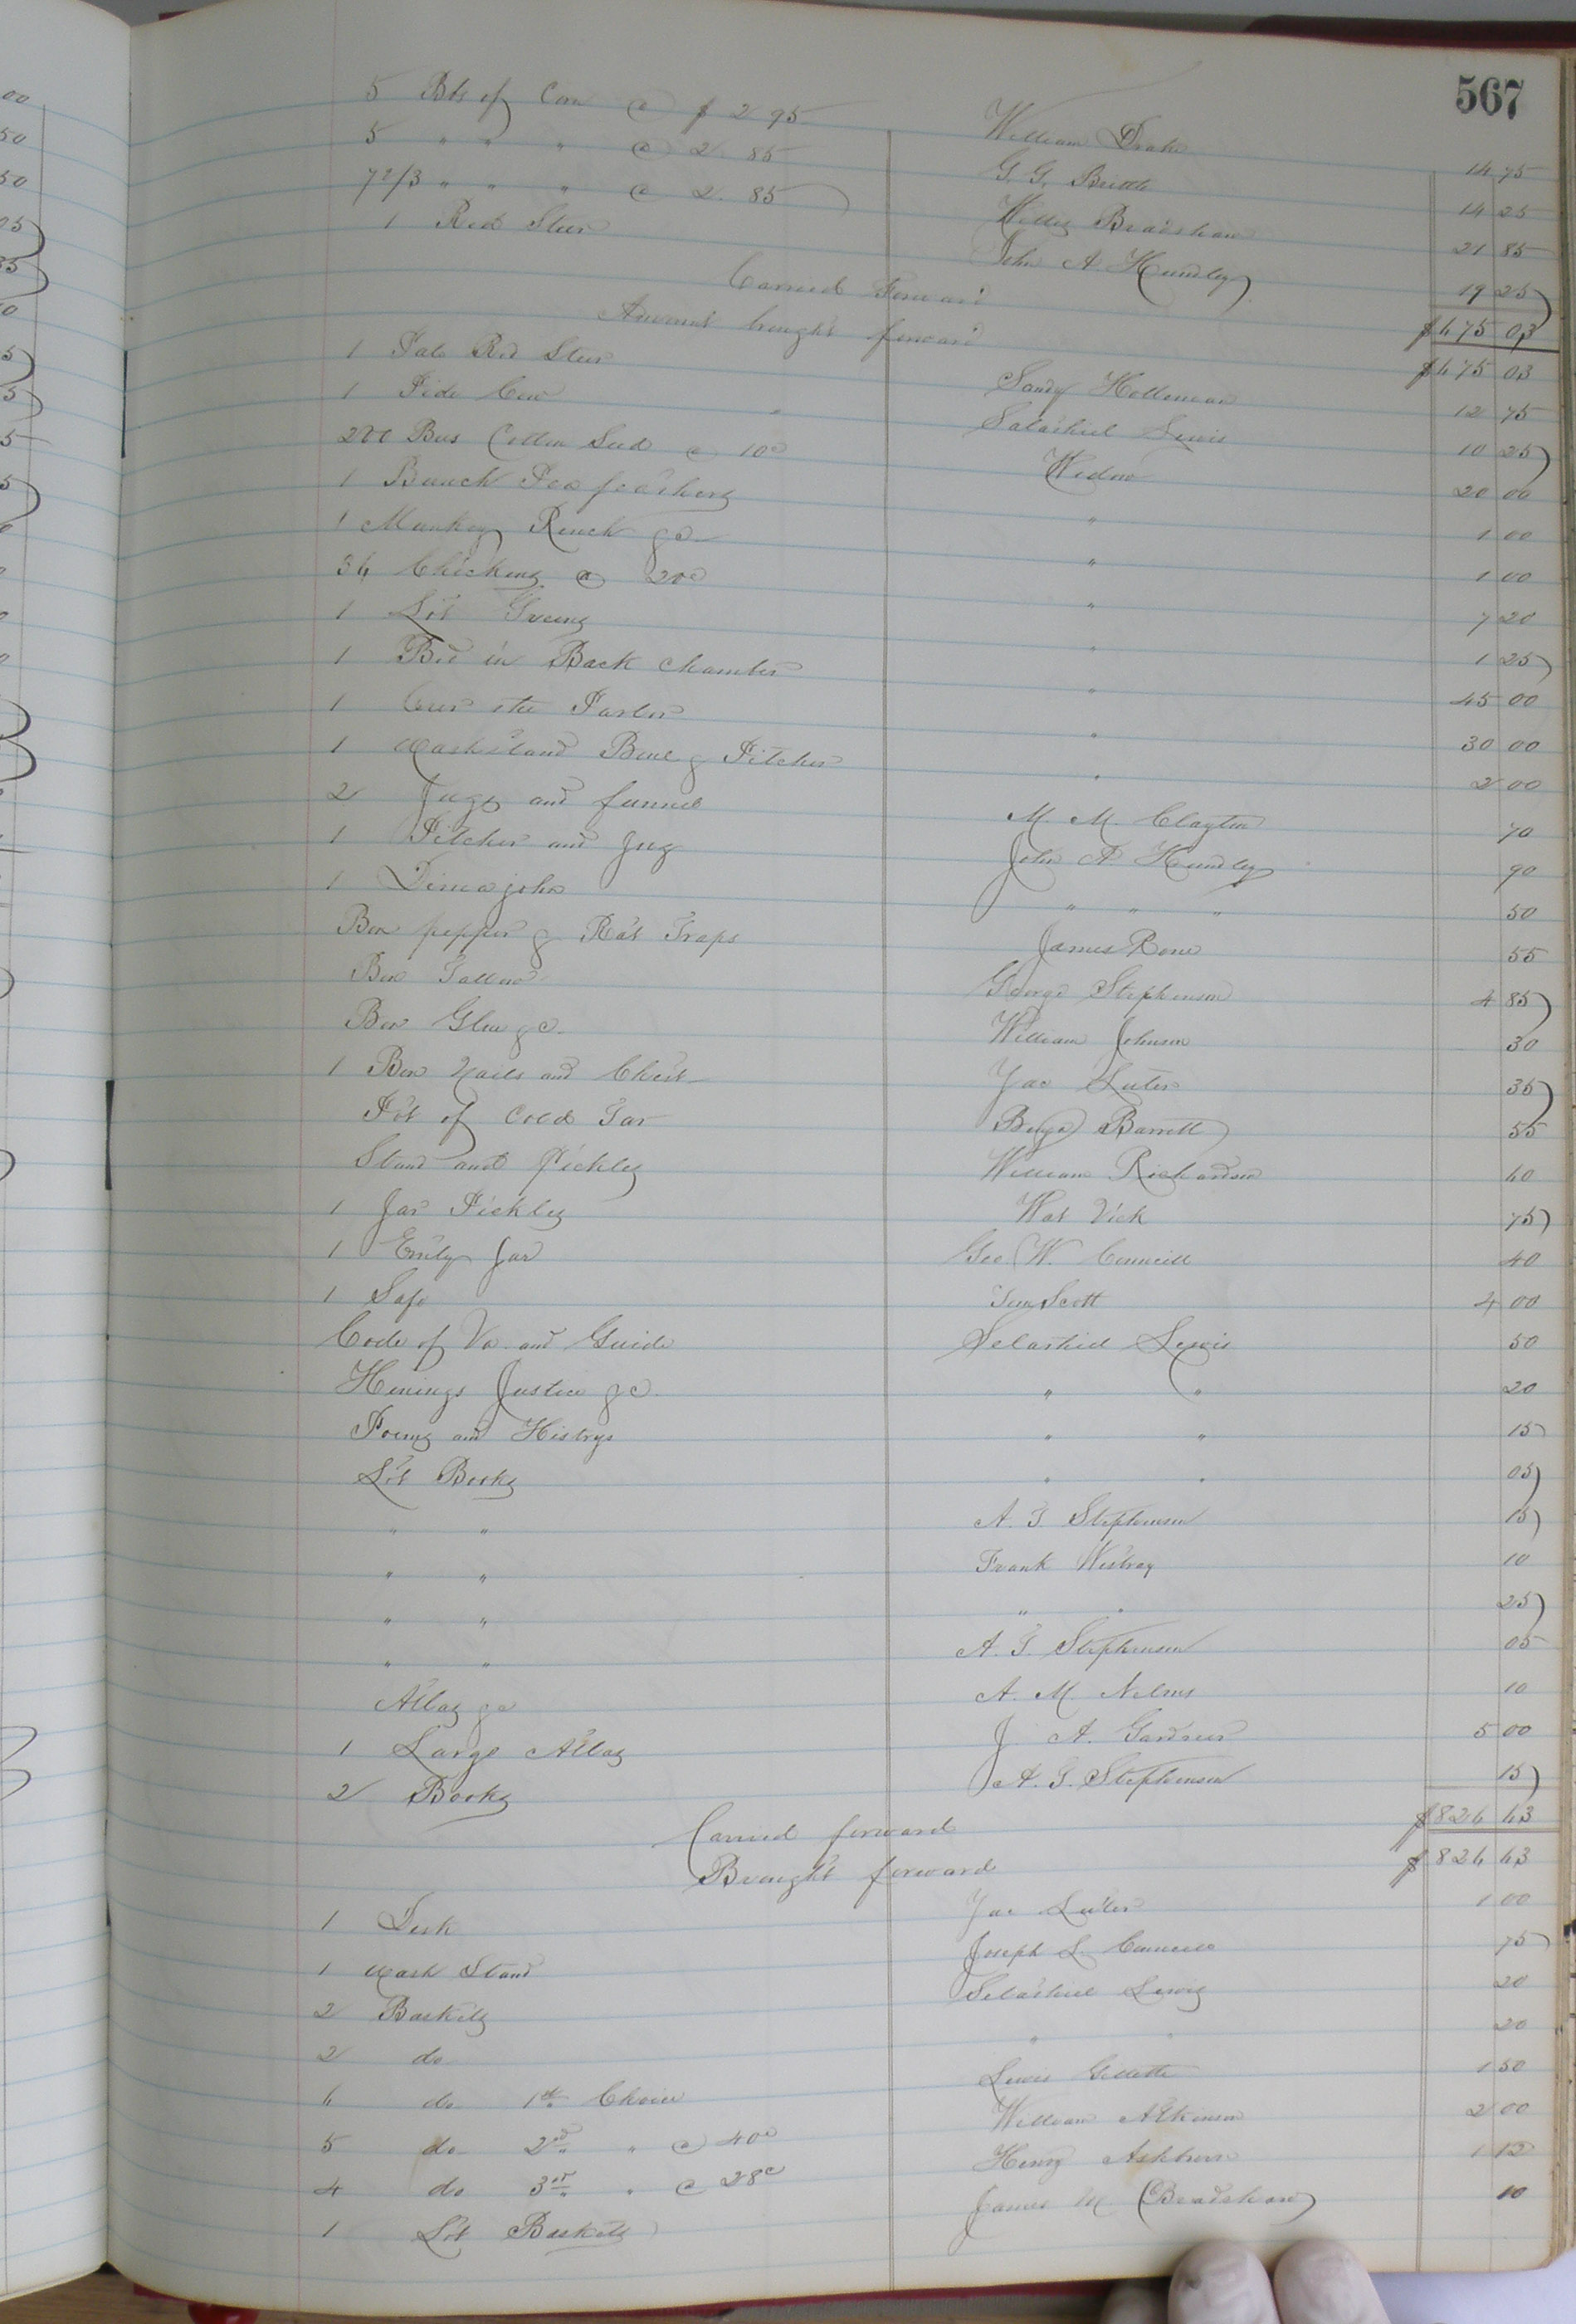 567
5 Bbs of Corn @ $2 95 William Drake 14 75
5 " " " @ 2. 85 G. G. Brittle 14 25
7 2/3 " " " @ 2. 85 Willis Bradshaw 21 85
1 Red Steer John A Hundley 19 25
Carried Forward $475 03
Amount brought forward $475 03
1 Pale Red Steer Sandy Holleman 12 75
1 Pide Cow Salathiel Lewis 10 25
200 Bus Cotton Seed @ 10c Widow 20 00
1 Bunch Pea feathers " 1 00
1 Munkey Rench &c " 1 00
36 Chickens @ 20c " 7 20
1 Lot Greens " 1 25
1 Bed in Back Chamber " 45 00
1 Over the Parlor " 30 00
1 Washstand Bowl & Pitcher " 2 00
2 Jugs and funnel M. M. Clayton 70
1 Pitcher and Jug John A Hundley 90
1 Dimajohn " " " 50
Box pepper & Rat Traps James Rone 55
Box Tallow George Stephenson 4 85
Box Glue &c. William Johnson 30
1 Box Nails and Chest Jac Luter 35
Pot of Cold Tar Barrett 55
Stand and Pickles William Richardson 40
1 Jar Pickles Wat Vick 75
1 Emty Jar Geo. W. Councill 40
1 Safe Tom Scott 4 00
Code of Va. and Guide Selathiel Lewis 50
Henings Justice &c. " " 20
Poems and Histrys " " 15
Lot Books " " 05
" " A. T. Stephenson 15
" " Frank Westray 10
" " " " 25
" " A. T. Stephenson 05
Atlas &c A. M. Nelms 10
1 Large Atlas J. A. Gardner 5 00
2 Books A. T. Stephenson 15
Carried forward $824 43
Brought forward $824 43
1 Desk Jac Luter 1 00
1 Wash Stand Joseph L. Councill 75
2 Baskets Selathiel Lewis 20
2 do " " 20
6 do 1st Choice Lewis Gillette 1 50
5 do 2nd " @ 40c William Atkinson 2 00
4 do 3rd " @ 28c Henry Ashburn 1 12
1 Lot Baskets James M. Bradshaw 10